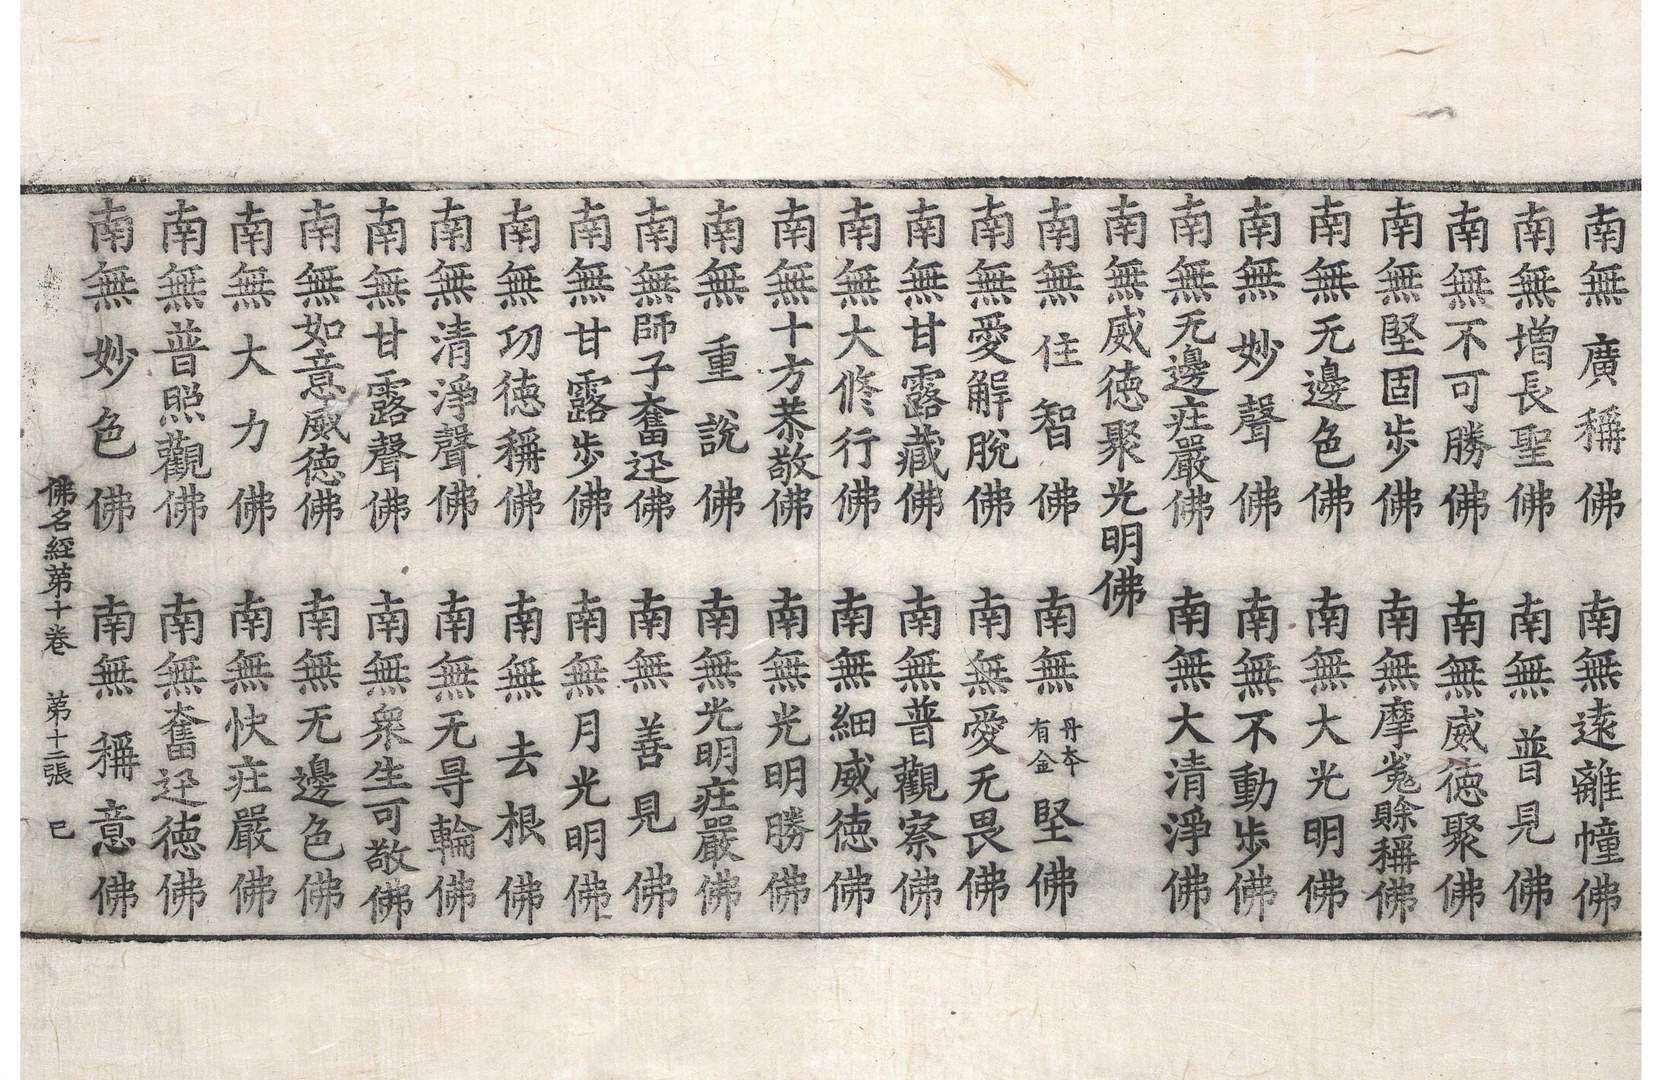 南無廣稱佛　南無遠離幢佛
南無增長聖佛　南無普見佛
南無不可勝佛　南無威德聚佛
南無堅固步佛　南無摩㝹賒稱佛
南無无邊色佛　南無大光明佛
南無妙聲佛　南無不動步佛
南無无邊莊嚴佛　南無大清淨佛
南無威德聚光明佛
南無住智佛　南無丹本有金堅佛
南無愛解脫佛　南無愛无畏佛
南無甘露藏佛　南無普觀察佛
南無大修行佛　南無細威德佛
南無十方恭敬佛　南無光明勝佛
南無重說佛　南無光明莊嚴佛
南無師子奮迅佛　南無善見佛
南無甘露步佛　南無月光明佛
南無功德稱佛　南無去根佛
南無清淨聲佛　南無无㝵輪佛
南無甘露聲佛　南無衆生可敬佛
南無如意威德佛　南無无邊色佛
南無大力佛　南無快莊嚴佛
南無普照觀佛　南無奮迅德佛
南無妙色佛　南無稱意佛
佛名經第十卷　第十二張　已